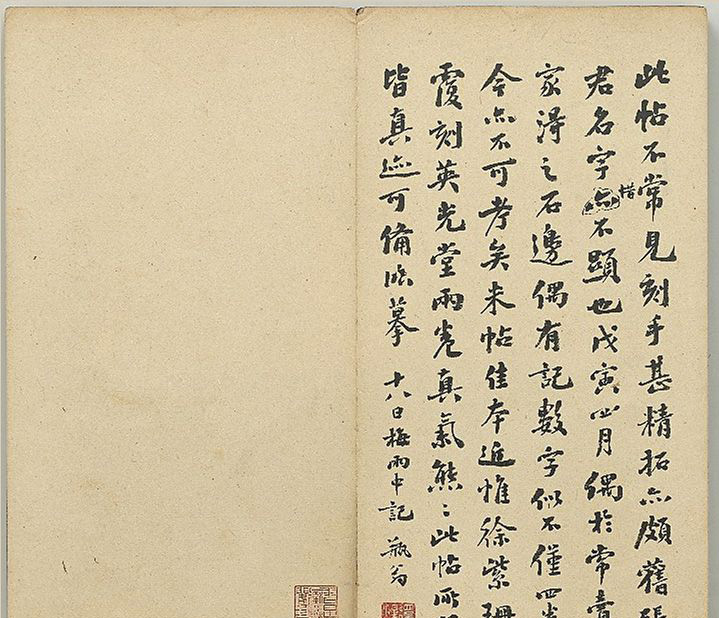 此帖不常見刻手甚精拓亦頗舊張
君名字惜不顯也戊寅四月偶於常賣
家得之石邊偶有記數字似不僅四
今亦不可考矣米帖佳本近惟徐紫珊
覆刻英光堂兩卷真氣熊〻此帖所
皆真迹可備臨摹 十八日梅雨中記 瓶翁